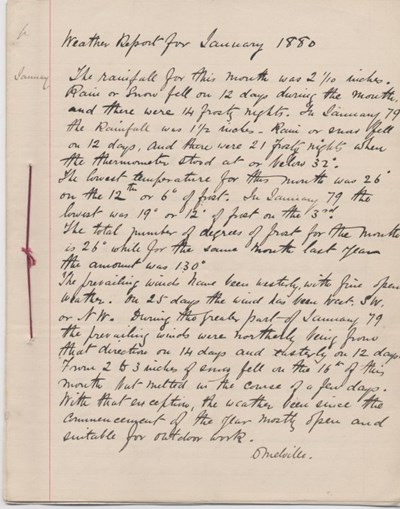 Weather Report for January 1880
January
The rainfall for this month was 2 1/10 inches.
Rain or Snow fell on 12 days during the month.
and there were 14 frosty nights. In January 79
the Rainfall was 1 1/2 inches. Rain or snow fell
on 12 days, and there were 21 frosty nights when
the thermometer stood at or below 32°.
The lowest temperature for this month was 26°
on the 12th or 6° of frost. In January 79 the
lowest was 19° or 12° of frost on the 3rd.
The total number of degrees of frost for the month
is 26° while for the same month last year
the amount was 130°
The prevailing winds have been westerly, with fine open
weather. On 25 days the wind has been West. SW.
or N.W. During the greater part of January 79
the prevailing winds were northerly being from
that direction on 14 days and easterly on 12 days.
From 2 to 3 inches of snow fell on the 16th of this
month but melted in the course of a few days.
With that exception, the weather been since the
commencement of the year mostly open and
suitable for outdoor work.
D Melville.